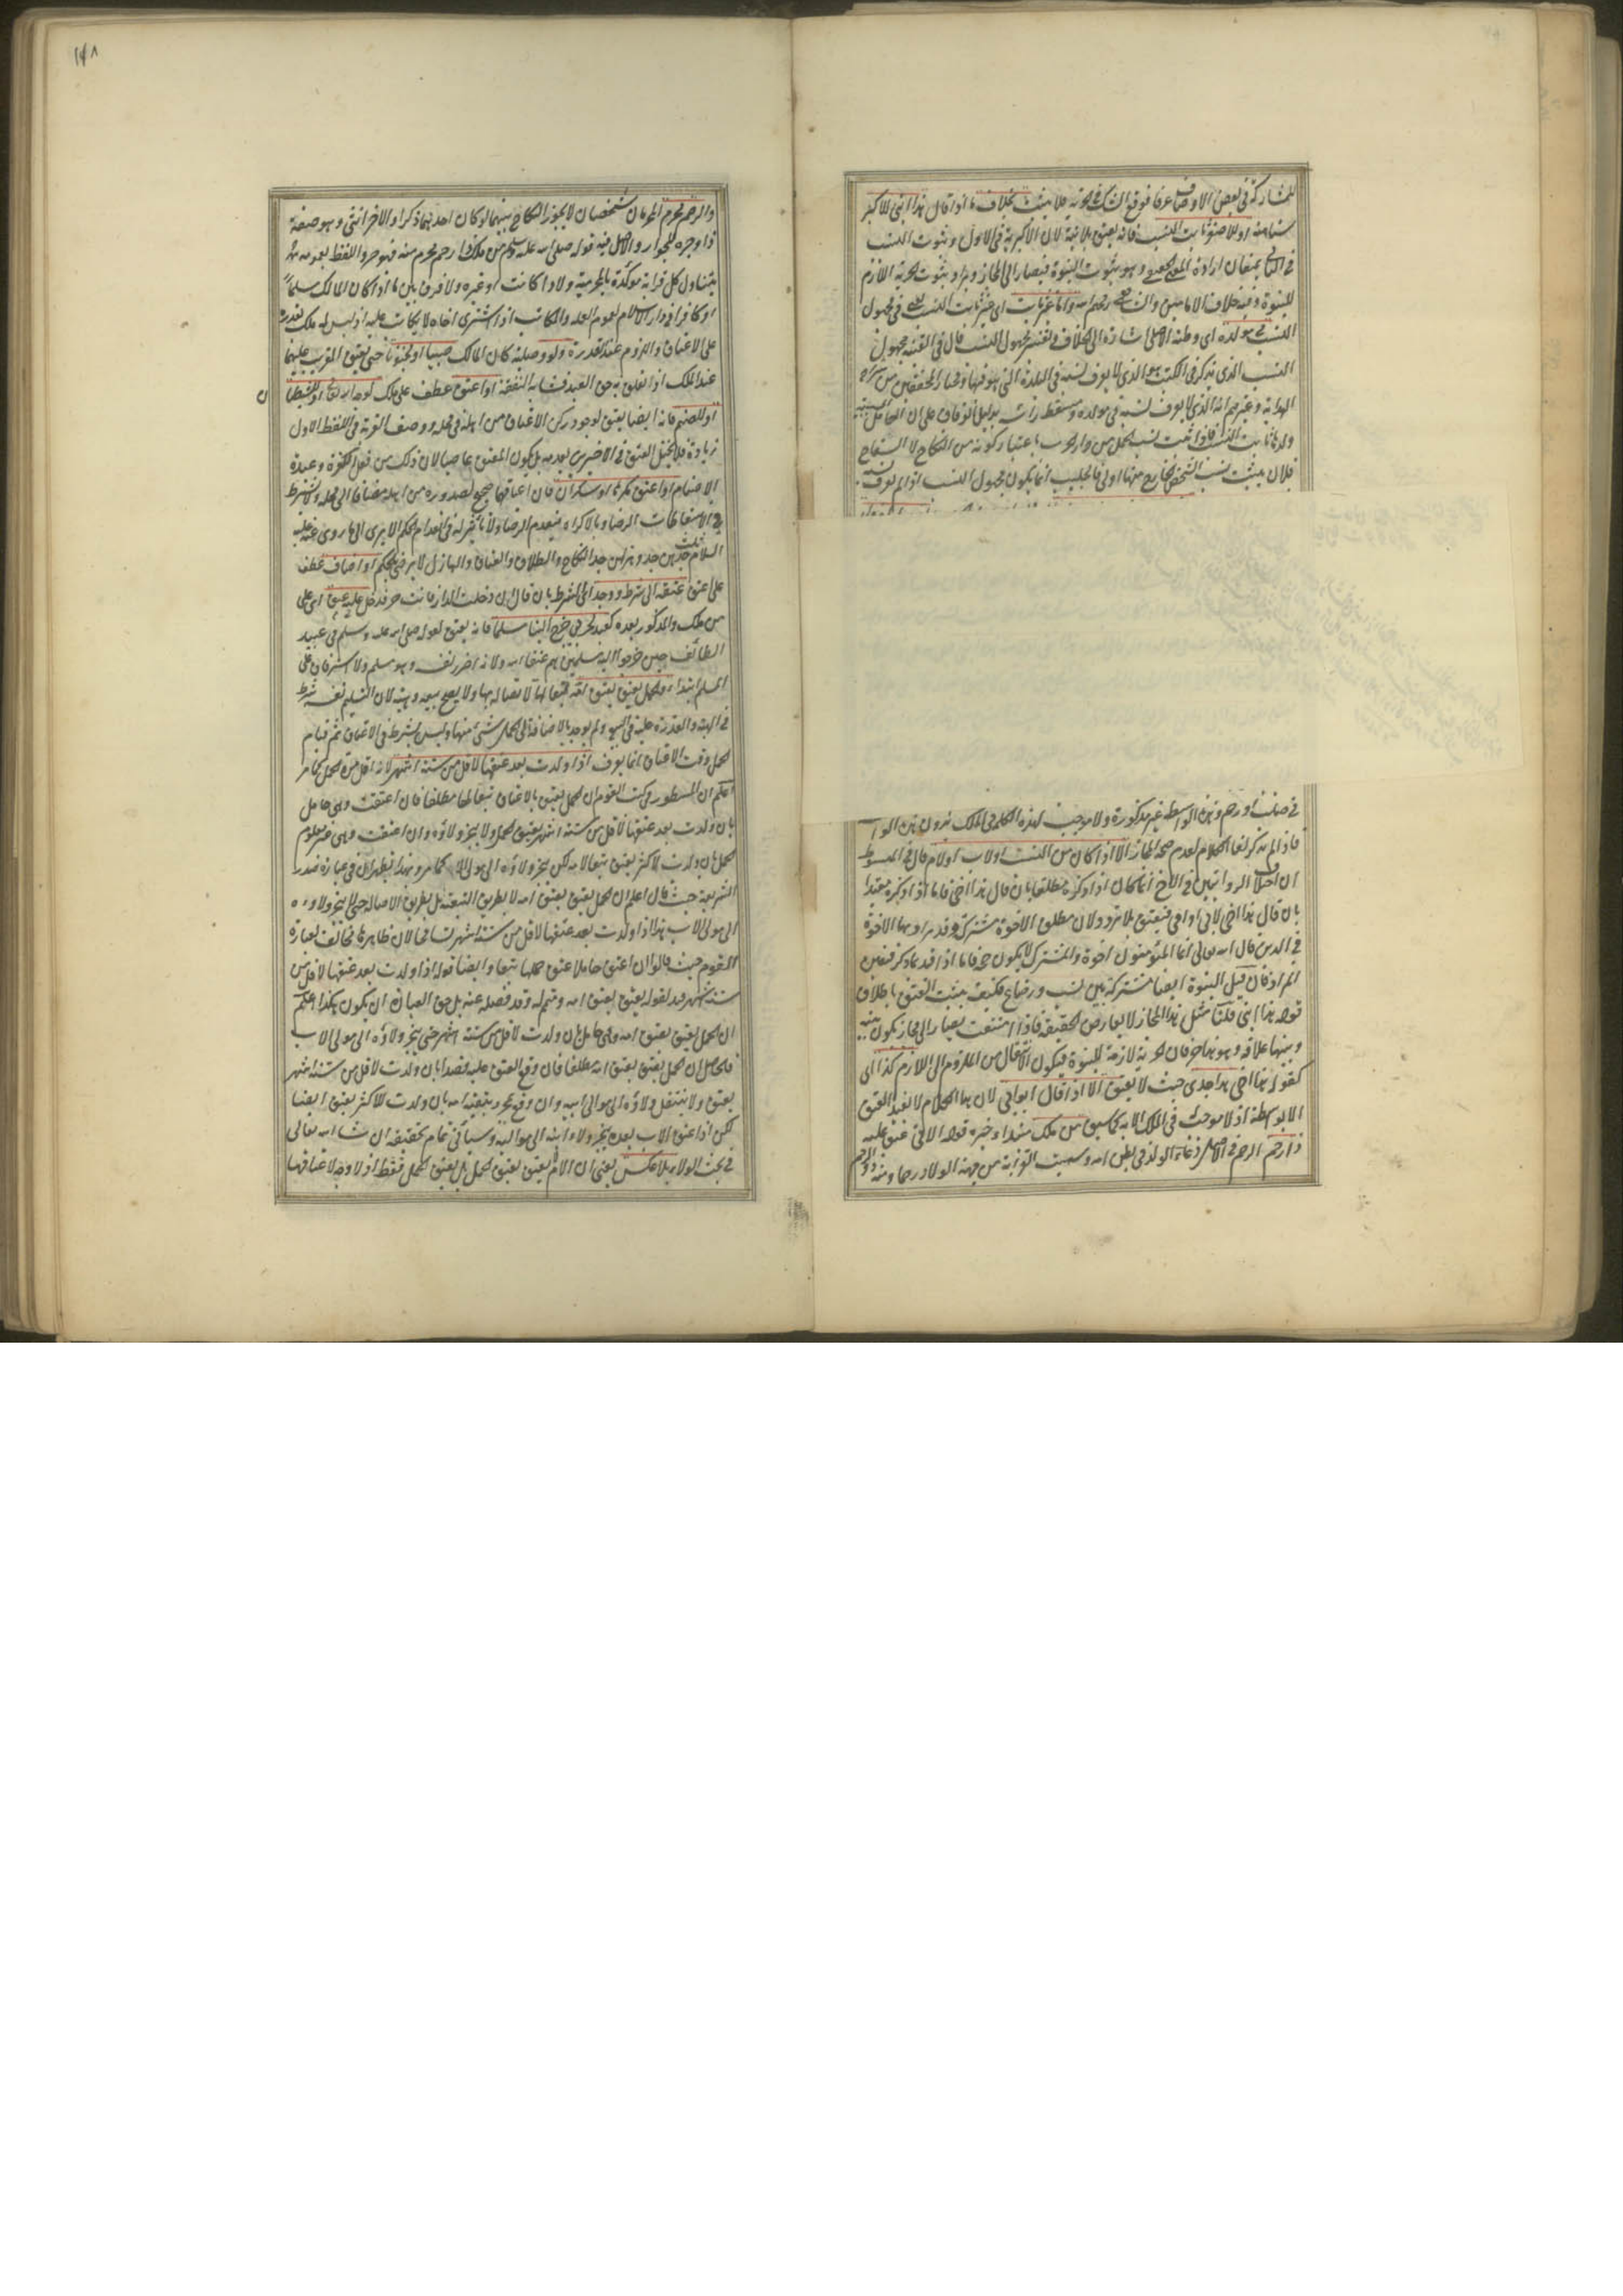 للمشاركة في بعض الاوصاف عرفا فوقع الشك في الحرية فلا يثبت بخلاف ما اذا قال هذا ابني للاكبر
سنا منه او للاصغر ثابت النسب فانه يعتق بلا نية لان الاكبرية في الاول وثبوت النسب
في الثاني يمنعان ارادة المعنى الحقيقي وهو ثبوت البنوة فيصار الى المجاز ويراد ثبوت الحرية اللازم
للبنوة وفيه خلاف الامامين والشافعي رحمهم الله واما غير ثابت اي غير ثابت النسب في مجهول
النسب في مولده اي وطنه الاصلي اشارة الى الخلاف في تفسير مجهول النسب قال في القنية مجهول
النسب الذي يذكر في الكتب هو الذي لا يعرف نسبه في البلدة التي هو فيها ومختار المحققين من شراح
الهداية وغيرهم انه الذي لا يعرف نسبه في مولده ومسقط رأسه
فلان يثبت نسب الشخص الخارج منها اولى فالجليب انما يكون مجهول النسب اذا لم يعرف نسبه
في صلب او رحم وهذه الواسطة غير مذكورة ولا موجب لهذه الكلمة في الملك بدون هذه الواسطة
فاذا لم تذكر لغا الكلام لعدم صحة المجاز الا اذا كان من النسب او لاب او لام قال في المبسوط
ان اختلاف الروايتين في الاخ انما كان اذا ذكره مطلقا بان قال هذا اخي فاما اذا ذكره مقيدا
بان قال هذا اخي لابي او امي فيعتق بلا تردد لان مطلق الاخوة مشترك وقد يراد بها الاخوة
في الدين قال الله تعالى انما المؤمنون اخوة والمشترك لا يكون حجة فاما اذا قيد بما ذكر فتعين
المراد فان قيل البنوة ايضا مشتركة بين نسب ورضاع فكيف يثبت العتق باطلاق
قوله هذا ابني قلنا مثل هذا المجاز لا يعارض الحقيقة فاذا امتنعت يصار الى مجاز يكون بينه
وبينها علاقة وهو هنا حر فان الحرية لازمة للبنوة فيكون الانتقال من الملزوم الى اللازم كذا اي
كقوله هذا اخي هذا جدي حيث لا يعتق الا اذا قال ابو ابي لان هذا الكلام لا يفيد العتق
الا بواسطة اذ لا موجب في الملك الا به كما سبق من ملك مبتدأ وخبره قوله الآتي عتق عليه
ذا رحم الرحم في الاصل وعاء الولد في بطن امه وسميت القرابة من جهة الولاد رحما ومنه ذو الرحم
والرحم محرم المحرمان شخصان لا يجوز النكاح بينهما لو كان احدهما ذكرا والآخر انثى وهو صفة
ذا وجره للجوار والاصل فيه قوله صلى الله عليه وسلم من ملك ذا رحم محرم منه فهو حر واللفظ بعمومه
يتناول كل قرابة مؤكدة بالمحرمية ولادا كانت او غيره ولا فرق بين ما اذا كان المالك مسلما
او كافرا في دار الاسلام لعموم العلة والمكاتب اذا اشترى اخاه لا يكاتب عليه اذ ليس له ملك يقدره
على الاعتاق واللزوم عند القدرة ولو وصلية كان المالك صبيا او مجنونا حتى يعتق القريب عليهما
عند الملك اذا تعلق به حق العبد فشابه النفقة او اعتق عطف على ملك لوجه الله تعالى او للشيطان
او للصنم فانه ايضا يعتق لوجود ركن الاعتاق من اهله في محله ووصف القربة في اللفظ الاول
زيادة فلا يختل العتق في الاخيرين بعدمه بل يكون المعتق بها عاصيا لان ذلك من فعل الكفرة وعبدة
الاصنام او اعتق مكرها او سكران فان اعتاقهما صحيح لصدوره من اهله مضافا الى محله ولا يشترط
في الاسقاطات الرضا وبالاكراه ينعدم الرضا ولا تأثير له في انعدام الحكم الا يرى الى ما روي عنه عليه
السلام ثلث جدهن جد وهزلهن جد النكاح والطلاق والعتاق والهازل لا يرضى بالحكم او اضاف عطف
على اعتق عتقه الى شرط ووجد الشرط بان قال ان دخلت الدار فانت حر فدخل عليه عتق اي على
من ملك والمذكور بعده كعبد لحربي خرج الينا مسلما فانه يعتق لقوله صلى الله عليه وسلم في عبيد
الطائف حين خرجوا اليه مسلمين هم عتقاء الله ولانه احرز نفسه وهو مسلم ولا استرقاق على
المسلم ابتداء والحمل يعتق بعتق امه تبعا لها لاتصاله بها ولا يصح بيعه وهبته لان التسليم نفسه شرط
في الهبة والقدرة عليه في البيع ولم يوجد بالاضافة الى الحمل شيء منها وليس بشرط في الاعتاق ثم قيام
الحمل وقت الاعتاق انما يعرف اذا ولدت بعد عتقها لاقل من ستة اشهر لانه اقل مدة الحمل كما مر
اعلم ان المسطور في كتب القوم ان الحمل يعتق بالاعتاق تبعا لها مطلقا فان اعتقت وهي حامل
بان ولدت بعد عتقها لاقل من ستة اشهر يعتق الحمل ولا ينجر ولاؤه وان اعتقت وهي غير معلوم
الحمل بان ولدت لاكثر يعتق تبعا لامه لكن ينجر ولاؤه الى موالي الاب كما مر وبهذا يظهر ان في عبارة صدر
الشريعة حيث قال اعلم ان الحمل يعتق بعتق امه لا بطريق التبعية بل بطريق الاصالة حتى لا ينجر ولاؤه
الى موالي الاب هذا اذا ولدت بعد عتقها لاقل من ستة اشهر تسامحا لان ظاهرها مخالف لعبارة
القوم حيث قالوا ان اعتق حاملا عتق حملها تبعا وايضا قوله اذا ولدت بعد عتقها لاقل من
ستة اشهر قيد لقوله يعتق بعتق امه ومتمم له وقد فصله عنه بل حق العبارة ان يكون هكذا اعلم
ان الحمل يعتق بعتق امه وهي حامل بان ولدت لاقل من ستة اشهر حتى ينجر ولاؤه الى موالي الاب
فالحاصل ان الحمل يعتق بعتق امه مطلقا فان وقع العتق عليه قصدا بان ولدت لاقل من ستة اشهر
يعتق ولا ينتقل ولاؤه الى موالي ابيه وان وقع بمجرد تبعية امه بان ولدت للاكثر يعتق ايضا
لكن اذا عتق الاب بعده ينجر ولاء ابنه الى مواليه وسيأتي تمام تحقيقه ان شاء الله تعالى
في بحث الولاء بلا عكس يعني ان الام لا يعتق بعتق الحمل بل يعتق الحمل فقط اذ لا وجه لاعتاقها